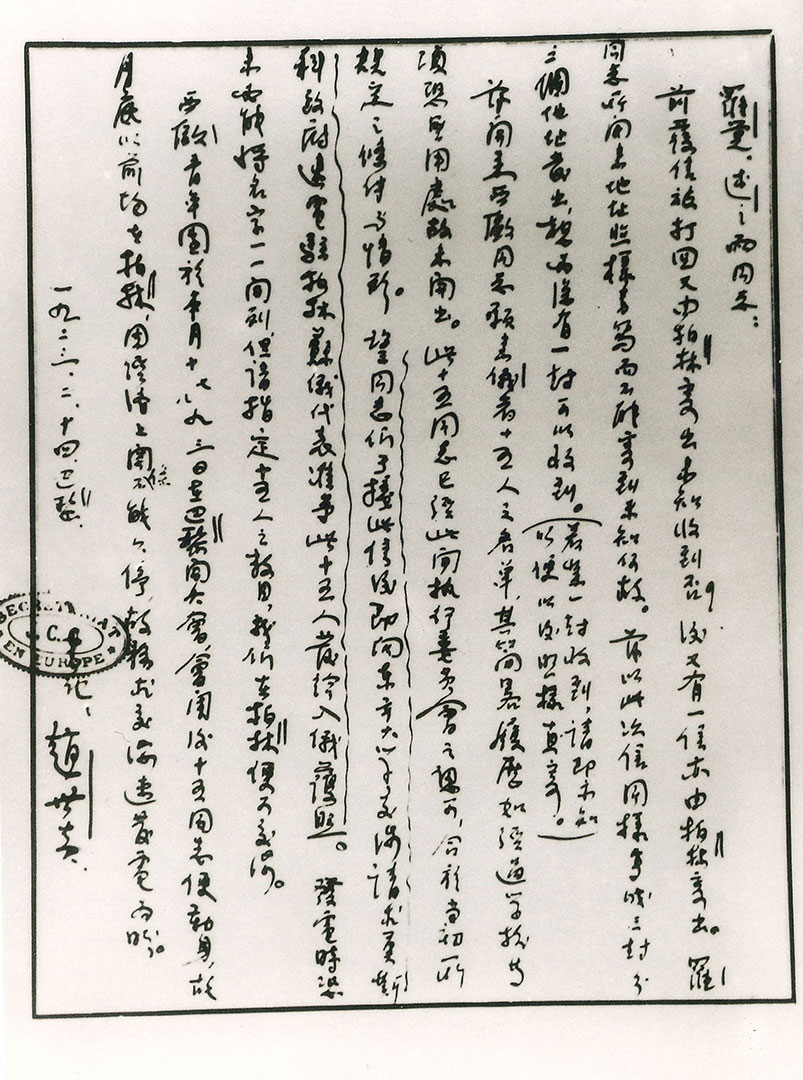 羅覺、述之兩同志：
前覆信被打回又由柏林寄出未知收到否？後又有一信亦由柏林寄出。羅
同志所開來地址照樣子寫而不能寄到未知何故。茲以此次信同樣寫成三封分
三個地址發出，想必總有一封可以收到。（若某一封收到，請即示知
以便以後照樣直寄。）
茲開來西歐同志願來俄者十五人之名單，其簡畧履歷如經過學校等
項恐無用處故未開出。此十五同志已經此間執行委員會之認可，合於當初所
規定之條件與情形。望同志們于接此信後即向東方大學交涉請求莫斯
科政府速電駐柏林蘇俄代表准予此十五人發給入俄護照。發電時恐
未必能將名字一一開列，但請指定十五人之數目，我們在柏林便可交涉。
西歐青年團於本月十七八九三日在巴黎開大會，會開後十五同志便動身，故
月底以前均在柏林，因經濟上關係不能久停，故務求交涉速發電為盼。
一九二三、二、十四、巴黎
書記：趙世炎
SECRETARIAT
C.
EN EUROPE